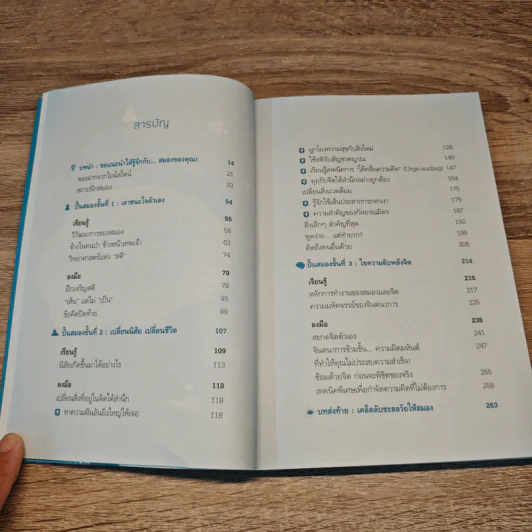 สารบัญ
บทนำ : ขอแนะนำให้รู้จักกับ... สมองของคุณ! 14
ของฝากจากไอน์สไตน์ 21
สถาปนิกสมอง 33
ปั้นสมองชั้นที่ 1 : เอาชนะใจตัวเอง 54
เรียนรู้ 55
วิวัฒนาการของสมอง 56
ช้างในคนป่า ช้างหน้าเทพเจ้า 63
วิทยาศาสตร์แห่ง "สติ" 74
ลงมือ 79
ฝึกเจริญสติ 79
"เห็น" แต่ไม่ "เป็น" 95
ข้อคิดปิดท้าย 99
ปั้นสมองชั้นที่ 2 : เปลี่ยนนิสัย เปลี่ยนชีวิต 107
เรียนรู้ 109
นิสัยเกิดขึ้นมาได้อย่างไร 113
ลงมือ 118
เปลี่ยนสิ่งที่อยู่ในจิตใต้สำนึก 118
หาความฝันอันยิ่งใหญ่ให้เจอ 118
ผูกโยงความสุขกับสิ่งใหม่ 129
ใช้สติจับสัญชาตญาณ 140
เรียนรู้เทคนิคการ "โต้คลื่นความคิด" (Urge-surfing) 147
คุยกับจิตใต้สำนึกอย่างถูกต้อง 164
เปลี่ยนสิ่งแวดล้อม 175
รู้จักใช้เส้นประสาทกระจกเงา 175
ความสำคัญของกัลยาณมิตร 187
สิ่งเล็กๆ สำคัญที่สุด 192
พูดง่าย... แต่ทำยาก? 199
คิดถึงคนอื่นด้วย 205
ปั้นสมองชั้นที่ 3 : ไขความลับพลังจิต 214
เรียนรู้ 215
หลักการทำงานของสมองและจิต 217
ความมหัศจรรย์ของจินตนาการ 225
ลงมือ 238
สะกดจิตตัวเอง 241
จินตนาการข้ามขั้น... ความผิดมหันต์ 247
ที่ทำให้คุณไม่ประสบความสำเร็จ!
ซ้อมด้วยจิต ก่อนจะพิชิตของจริง 255
เทคนิคพิเศษเพื่อกำจัดความคิดที่ไม่ต้องการ 258
บทส่งท้าย : เคล็ดลับชะลอวัยให้สมอง 263